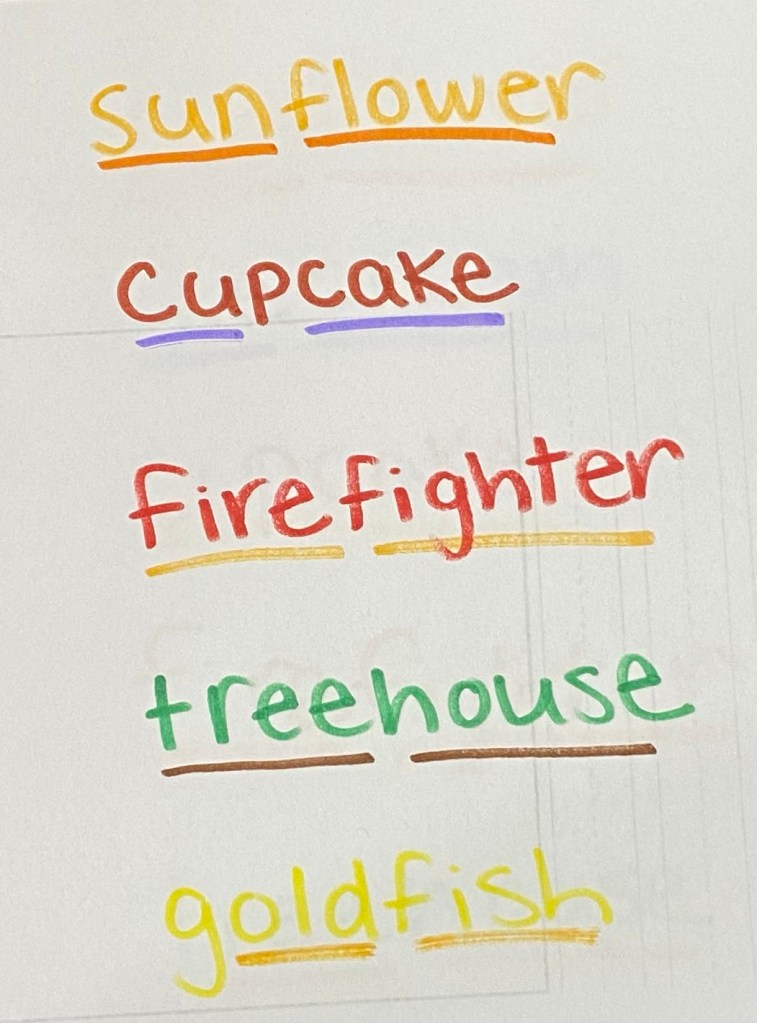 sunflower
cupcake
firefighter
treehouse
goldfish